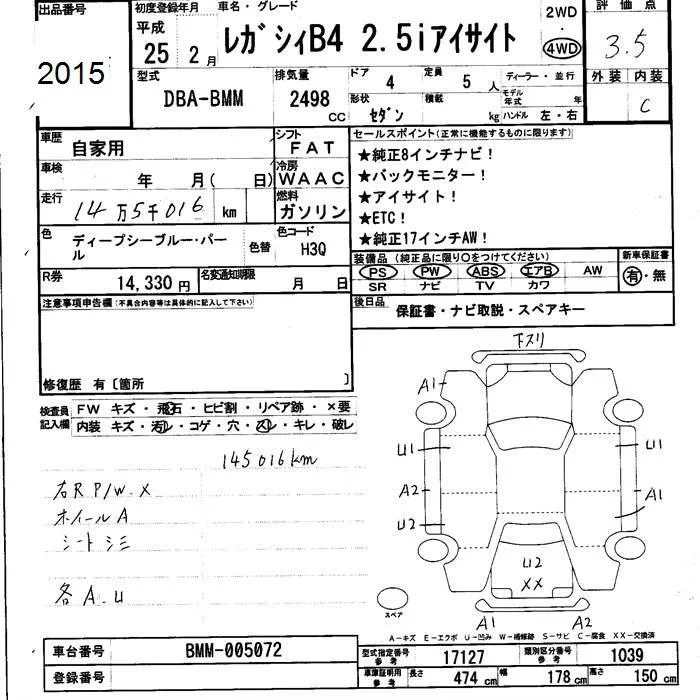 出品番号
2015
初度登録年月
平成
25 2月
車名・グレード
レガシィB4 2.5iアイサイト
2WD
・
4WD
評価点
3.5
型式
DBA-BMM
排気量
2498 CC
ドア
4
定員
5 人
ディーラー・並行
形状
セダン
積載
kg
モデル年式 年
ハンドル 左・右
外装 内装
C
車歴
自家用
シフト
FAT
車検
年 月( 日)
冷房
WAAC
走行
14万5千016 km
燃料
ガソリン
色
ディープシーブルー・パール
色替
色コード
H3Q
R券
14,330 円
名変通知期限
月 日
セールスポイント(正常に機能するものに限ります)
★純正8インチナビ!
★バックモニター!
★アイサイト!
★ETC!
★純正17インチAW!
装備品(純正品に限り○をつけてください)
PS PW ABS エアB AW
SR ナビ TV カワ
新車保証書
有・無
後日品
保証書・ナビ取説・スペアキー
注意事項申告欄(不具合内容等は具体的に記入して下さい)
修復歴 有〔箇所 〕
検査員記入欄
FW キズ・飛石・ヒビ割・リペア跡・×要
内装 キズ・汚レ・コゲ・穴・スレ・キレ・破レ
145016km
右RP/W.X
ホイールA
シートシミ
各A.U
下スリ
A1
U1 U1
A2 A1
U2
U2
XX
スペア
A1 A2
A-キズ E-エクボ U-凹み W-補修跡 S-サビ C-腐食 XX-交換済
車台番号
BMM-005072
登録番号
型式指定番号
参考
17127
類別区分番号
参考
1039
車庫証明用
参考
長さ
474 cm
幅
178 cm
高さ
150 cm